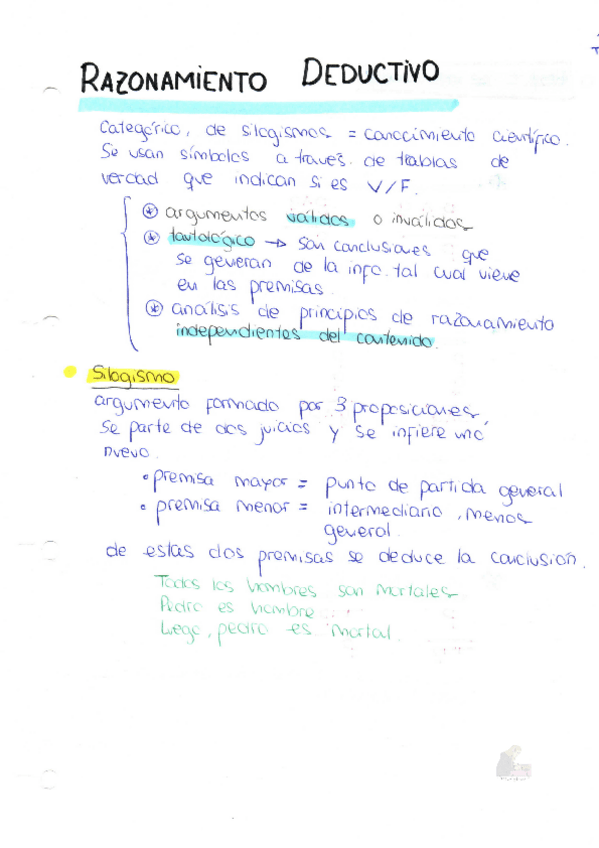 RAZONAMIENTO DEDUCTIVO
Categórico, de silogismos = conocimiento científico.
Se usan símbolos a través de tablas de
verdad que indican si es V/F.
* argumentos válidos o inválidos
* tautológico → son conclusiones que
se generan de la info. tal cual viene
en las premisas.
* análisis de principios de razonamiento
independientes del contenido.
• Silogismo
argumento formado por 3 proposiciones,
se parte de dos juicios y se infiere uno
nuevo.
• premisa mayor = punto de partida general
• premisa menor = intermediario, menos
general.
de estas dos premisas se deduce la conclusión.
Todos los hombres son mortales
Pedro es hombre
Luego, pedro es mortal.